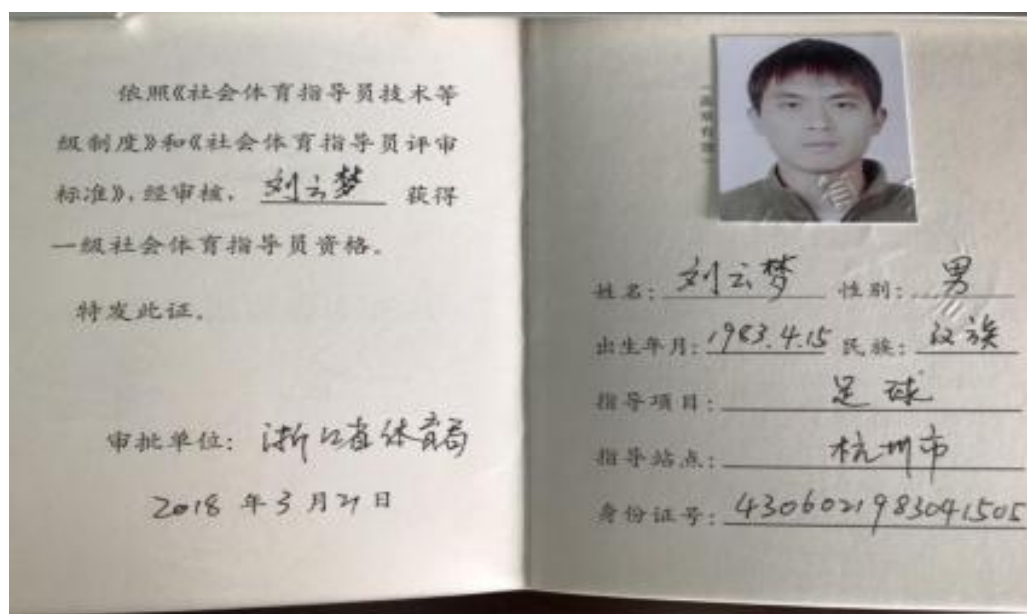 依照《社会体育指导员技术等
级制度》和《社会体育指导员评审
标准》,经审核, 刘云梦 获得
一级社会体育指导员资格。
特发此证。
审批单位: 浙江省体育局
2018 年 3 月 21 日
姓名: 刘云梦 性别: 男
出生年月: 1983.4.15 民族: 汉族
指导项目: 足球
指导站点: 杭州市
身份证号: 4306021983041505